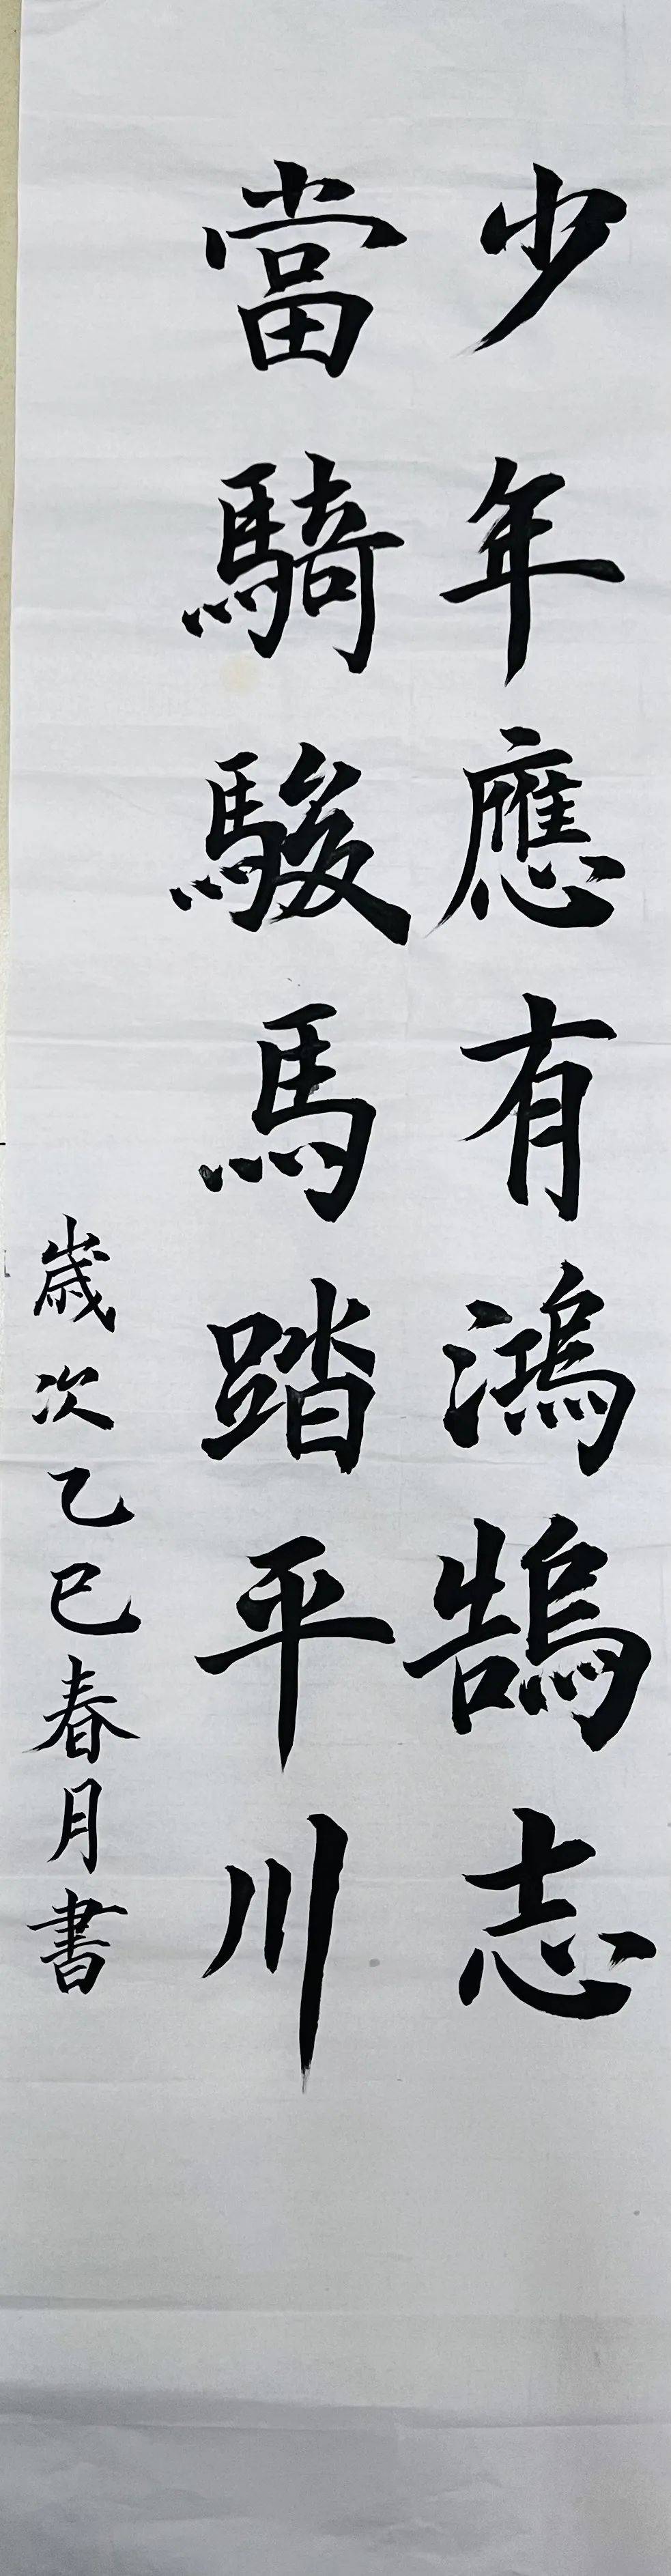 少年應有鴻鵠志
當騎駿馬踏平川
歲次乙巳春月書